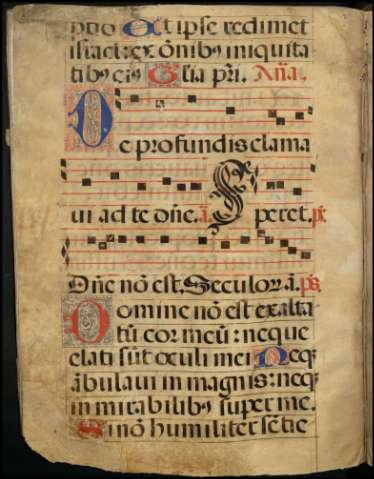 ptio Et ipse redimet
israel: ex õnibꝰ iniquita
tibꝰ eiꝰ Glia pri. Aña.
De profundis clama
ui ad te dñe. ã. Speret. ps.
Dñe nõ est. Seculoꝝ ã. ps.
Domine nõ est exalta
tũ cor meũ: neque
elati sũt oculi mei Neqꝫ
ãbulaui in magnis: neqꝫ
in mirabilibꝰ super me.
Si nõ humiliter sẽtie